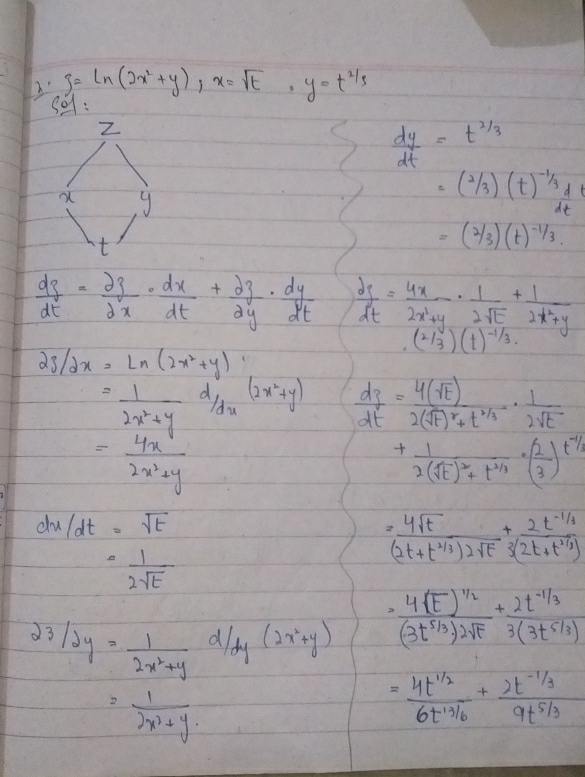 2. z = Ln(2x² + y) ; x = √t , y = t^2/3
Sol:
Z
x y
t
dz/dt = ∂z/∂x · dx/dt + ∂z/∂y · dy/dt
∂z/∂x = Ln(2x² + y)
= 1/(2x² + y) d/dx (2x² + y)
= 4x/(2x² + y)
dx/dt = √t
= 1/(2√t)
∂z/∂y = 1/(2x² + y) d/dy (2x² + y)
= 1/(2x² + y).
dy/dt = t^2/3
= (2/3)(t)^-1/3 d/dt t
= (2/3)(t)^-1/3.
dz/dt = 4x/(2x² + y) · 1/(2√t) + 1/(2x² + y)
. (2/3)(t)^-1/3.
dz/dt = 4(√t)/(2(√t)² + t^2/3) · 1/(2√t)
+ 1/(2(√t)² + t^2/3) · (2/3) t^-1/3
= 4√t/((2t + t^2/3)2√t) + 2t^-1/3/(3(2t + t^2/3))
= 4(t)^1/2/((3t^5/3)2√t) + 2t^-1/3/(3(3t^5/3))
= 4t^1/2/(6t^13/6) + 2t^-1/3/(9t^5/3)